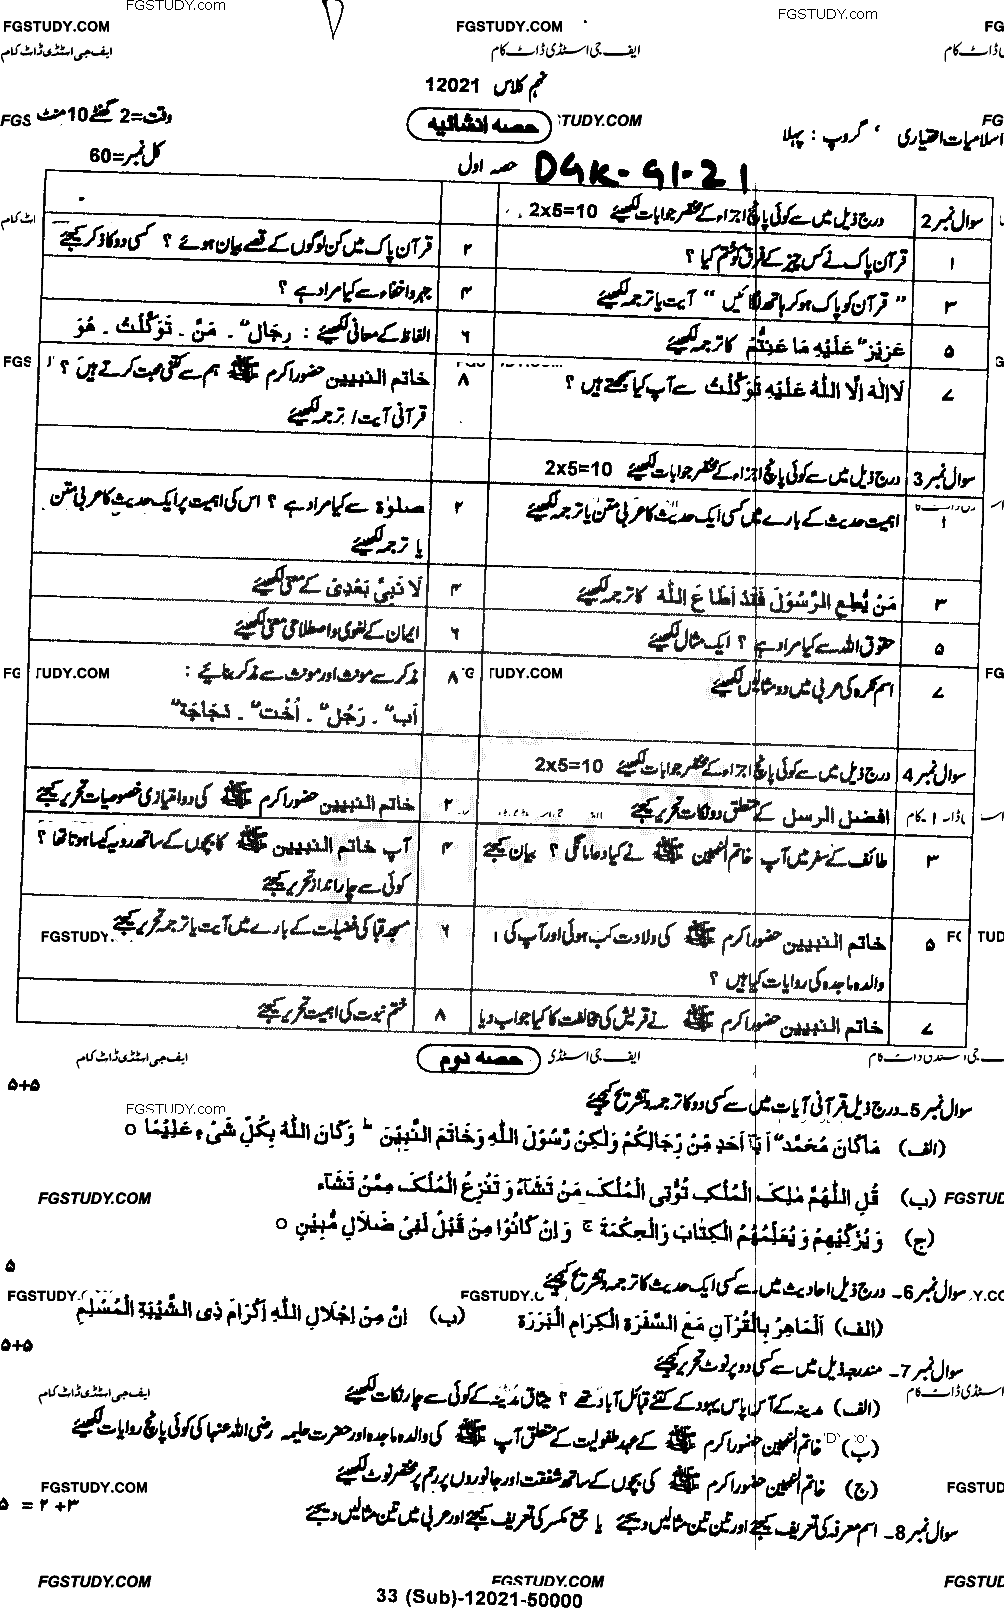 FGSTUDY.com FGSTUDY.com
FGSTUDY.COM FGSTUDY.COM FG
ایف جی اسٹڈی ڈاٹ کام ایف جی اسٹڈی ڈاٹ کام ڈاٹ کام
نہم کلاس 12021
اسلامیات اختیاری ، گروپ : پہلا حصہ انشائیہ وقت=2 گھنٹے 10 منٹ
FGS STUDY.COM FG
حصہ اول DGK-G1-21 کل نمبر=60
سوال نمبر 2 درج ذیل میں سے کوئی پانچ اجزاء کے مختصر جوابات لکھیئے 2x5=10
۱ قرآن پاک نے کس چیز کے فرق کو ختم کیا ؟ ۲ قرآن پاک میں کن لوگوں کے قصے بیان ہوئے ؟ کسی دو کا ذکر کیجئے
۳ "قرآن کو پاک ہو کر ہاتھ لگائیں" آیت یا ترجمہ لکھیئے ۴ جہر و اخفاء سے کیا مراد ہے ؟
۵ عَزِيزٌ عَلَيْهِ مَا عَنِتُّمْ کا ترجمہ لکھیئے ۶ الفاظ کے معانی لکھیئے : رِجَالٌ ۔ مَنَّ ۔ تَوَكَّلْتُ ۔ هُوَ
۷ لَا اِلٰهَ اِلَّا اللّٰهُ عَلَيْهِ تَوَكَّلْتُ سے آپ کیا سمجھتے ہیں ؟ ۸ خاتم النبیین حضور اکرم ﷺ ہم سے کتنی محبت کرتے ہیں ؟
قرآنی آیت / ترجمہ لکھیئے
سوال نمبر 3 درج ذیل میں سے کوئی پانچ اجزاء کے مختصر جوابات لکھیئے 2x5=10
۱ اہمیت حدیث کے بارے میں کسی ایک حدیث کا عربی متن یا ترجمہ لکھیئے ۲ صلوٰۃ سے کیا مراد ہے ؟ اس کی اہمیت پر ایک حدیث کا عربی متن
یا ترجمہ لکھیئے
۳ مَنْ يُّطِعِ الرَّسُوْلَ فَقَدْ اَطَاعَ اللّٰهَ کا ترجمہ لکھیئے ۴ لَا نَبِيَّ بَعْدِىْ کے معنی لکھیئے
۵ حقوق اللہ سے کیا مراد ہے ؟ ایک مثال لکھیئے ۶ ایمان کے لغوی و اصطلاحی معنی لکھیئے
۷ اسم نکرہ کی عربی میں دو مثالیں لکھیئے ۸ مذکر سے مونث اور مونث سے مذکر بنائیے :
اَبٌ ۔ رَجُلٌ ۔ اُخْتٌ ۔ دَجَاجَةٌ
سوال نمبر 4 درج ذیل میں سے کوئی پانچ اجزاء کے مختصر جوابات لکھیئے 2x5=10
۱ افضل الرسل کے متعلق دو نکات تحریر کیجئے ۲ خاتم النبیین حضور اکرم ﷺ کی دو امتیازی خصوصیات تحریر کیجئے
۳ طائف کے سفر میں آپ خاتم النبیین ﷺ نے کیا دعا مانگی ؟ بیان کیجئے ۴ آپ خاتم النبیین ﷺ کا بچوں کے ساتھ رویہ کیسا ہوتا تھا ؟
کوئی سے چار انداز تحریر کیجئے
۵ خاتم النبیین حضور اکرم ﷺ کی ولادت کب ہوئی اور آپ کی ۶ مسجد قبا کی فضیلت کے بارے میں آیت یا ترجمہ تحریر کیجئے
والدہ ماجدہ کی روایات کیا ہیں ؟
۷ خاتم النبیین حضور اکرم ﷺ نے قریش کی مخالفت کا کیا جواب دیا ۸ ختم نبوت کی اہمیت تحریر کیجئے
حصہ دوم
ایف جی اسٹڈی ڈاٹ کام
سوال نمبر 5۔ درج ذیل قرآنی آیات میں سے کسی دو کا ترجمہ و تشریح کیجئے ۵+۵
FGSTUDY.com
(الف) مَا كَانَ مُحَمَّدٌ اَبَآ اَحَدٍ مِّنْ رِّجَالِكُمْ وَلٰكِنْ رَّسُوْلَ اللّٰهِ وَخَاتَمَ النَّبِيّٖنَ ط وَكَانَ اللّٰهُ بِكُلِّ شَيْءٍ عَلِيْمًا ○
(ب) قُلِ اللّٰهُمَّ مٰلِكَ الْمُلْكِ تُؤْتِى الْمُلْكَ مَنْ تَشَآءُ وَ تَنْزِعُ الْمُلْكَ مِمَّنْ تَشَآءُ
FGSTUDY.COM FGSTUD
(ج) وَ يُزَكِّيْهِمْ وَ يُعَلِّمُهُمُ الْكِتٰبَ وَالْحِكْمَةَ ج وَ اِنْ كَانُوْا مِنْ قَبْلُ لَفِىْ ضَلَالٍ مُّبِيْنٍ ○
سوال نمبر 6۔ درج ذیل احادیث میں سے کسی ایک حدیث کا ترجمہ و تشریح کیجئے ۵
(الف) اَلْمَاهِرُ بِالْقُرْآنِ مَعَ السَّفَرَةِ الْكِرَامِ الْبَرَرَةِ (ب) اِنَّ مِنْ اِجْلَالِ اللّٰهِ اِكْرَامَ ذِى الشَّيْبَةِ الْمُسْلِمِ
سوال نمبر 7۔ مندرجہ ذیل میں سے کسی دو پر نوٹ تحریر کیجئے ۵+۵
(الف) مدینہ کے آس پاس یہود کے کتنے قبائل آباد تھے ؟ میثاق مدینہ کے کوئی سے چار نکات لکھیئے
(ب) خاتم النبیین حضور اکرم ﷺ کے عہد طفولیت کے متعلق آپ ﷺ کی والدہ ماجدہ اور حضرت حلیمہ رضی اللہ عنہا کی کوئی پانچ روایات لکھیئے
(ج) خاتم النبیین حضور اکرم ﷺ کی بچوں کے ساتھ شفقت اور جانوروں پر رحم پر مختصر نوٹ لکھیئے
FGSTUDY.COM FGSTUD
سوال نمبر 8۔ اسم معرفہ کی تعریف کیجئے اور تین تین مثالیں دیجئے یا جمع مکسر کی تعریف کیجئے اور عربی میں تین مثالیں دیجئے ۳+۲ = ۵
FGSTUDY.COM FGSTUDY.COM FGSTUD
33 (Sub)-12021-50000